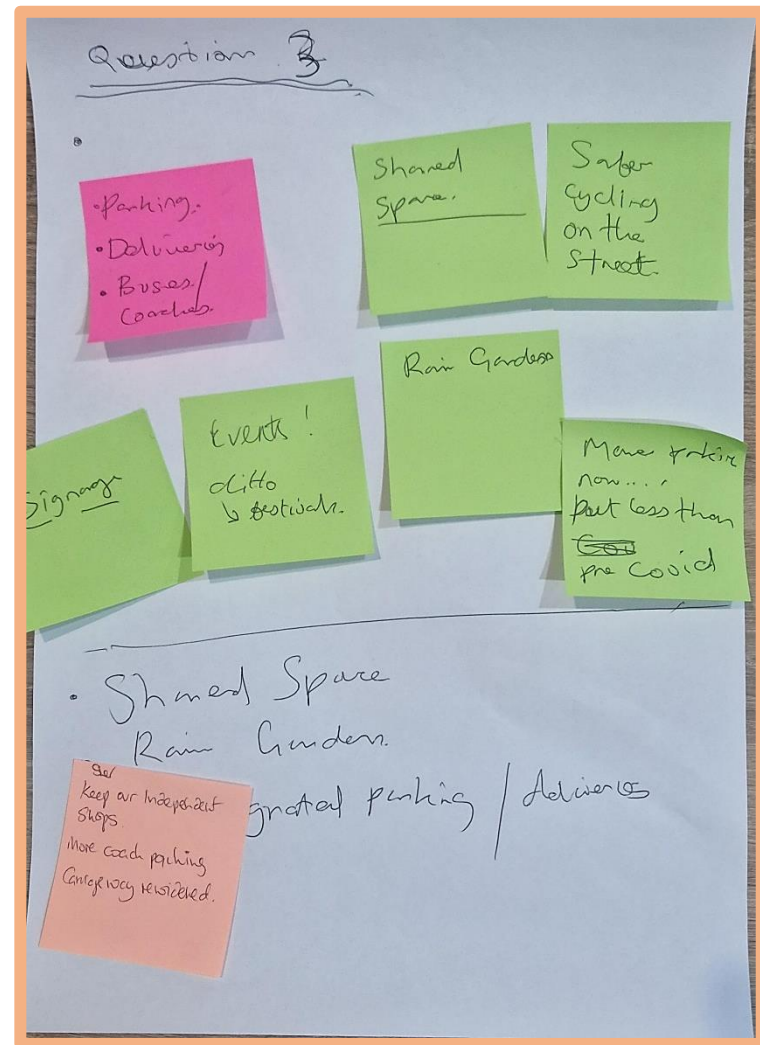 Question 3
• Parking.
• Deliveries
• Buses /
Coaches.
Shared
Space.
Safer
Cycling
on the
Street.
Signage
Events!
ditto
↳ festivals.
Rain Gardens
More parking
now....
but less than
pre Covid
• Shared Space
Rain Gardens.
gnated parking / deliveries
Keep our Independent
Shops.
More coach parking
Carriageway rewidened.